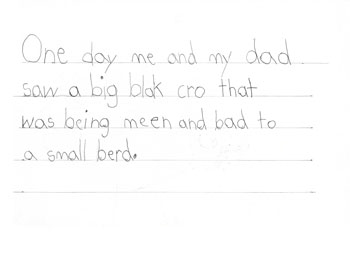 One day me and my dad
saw a big blak cro that
was being meen and bad to
a small berd.